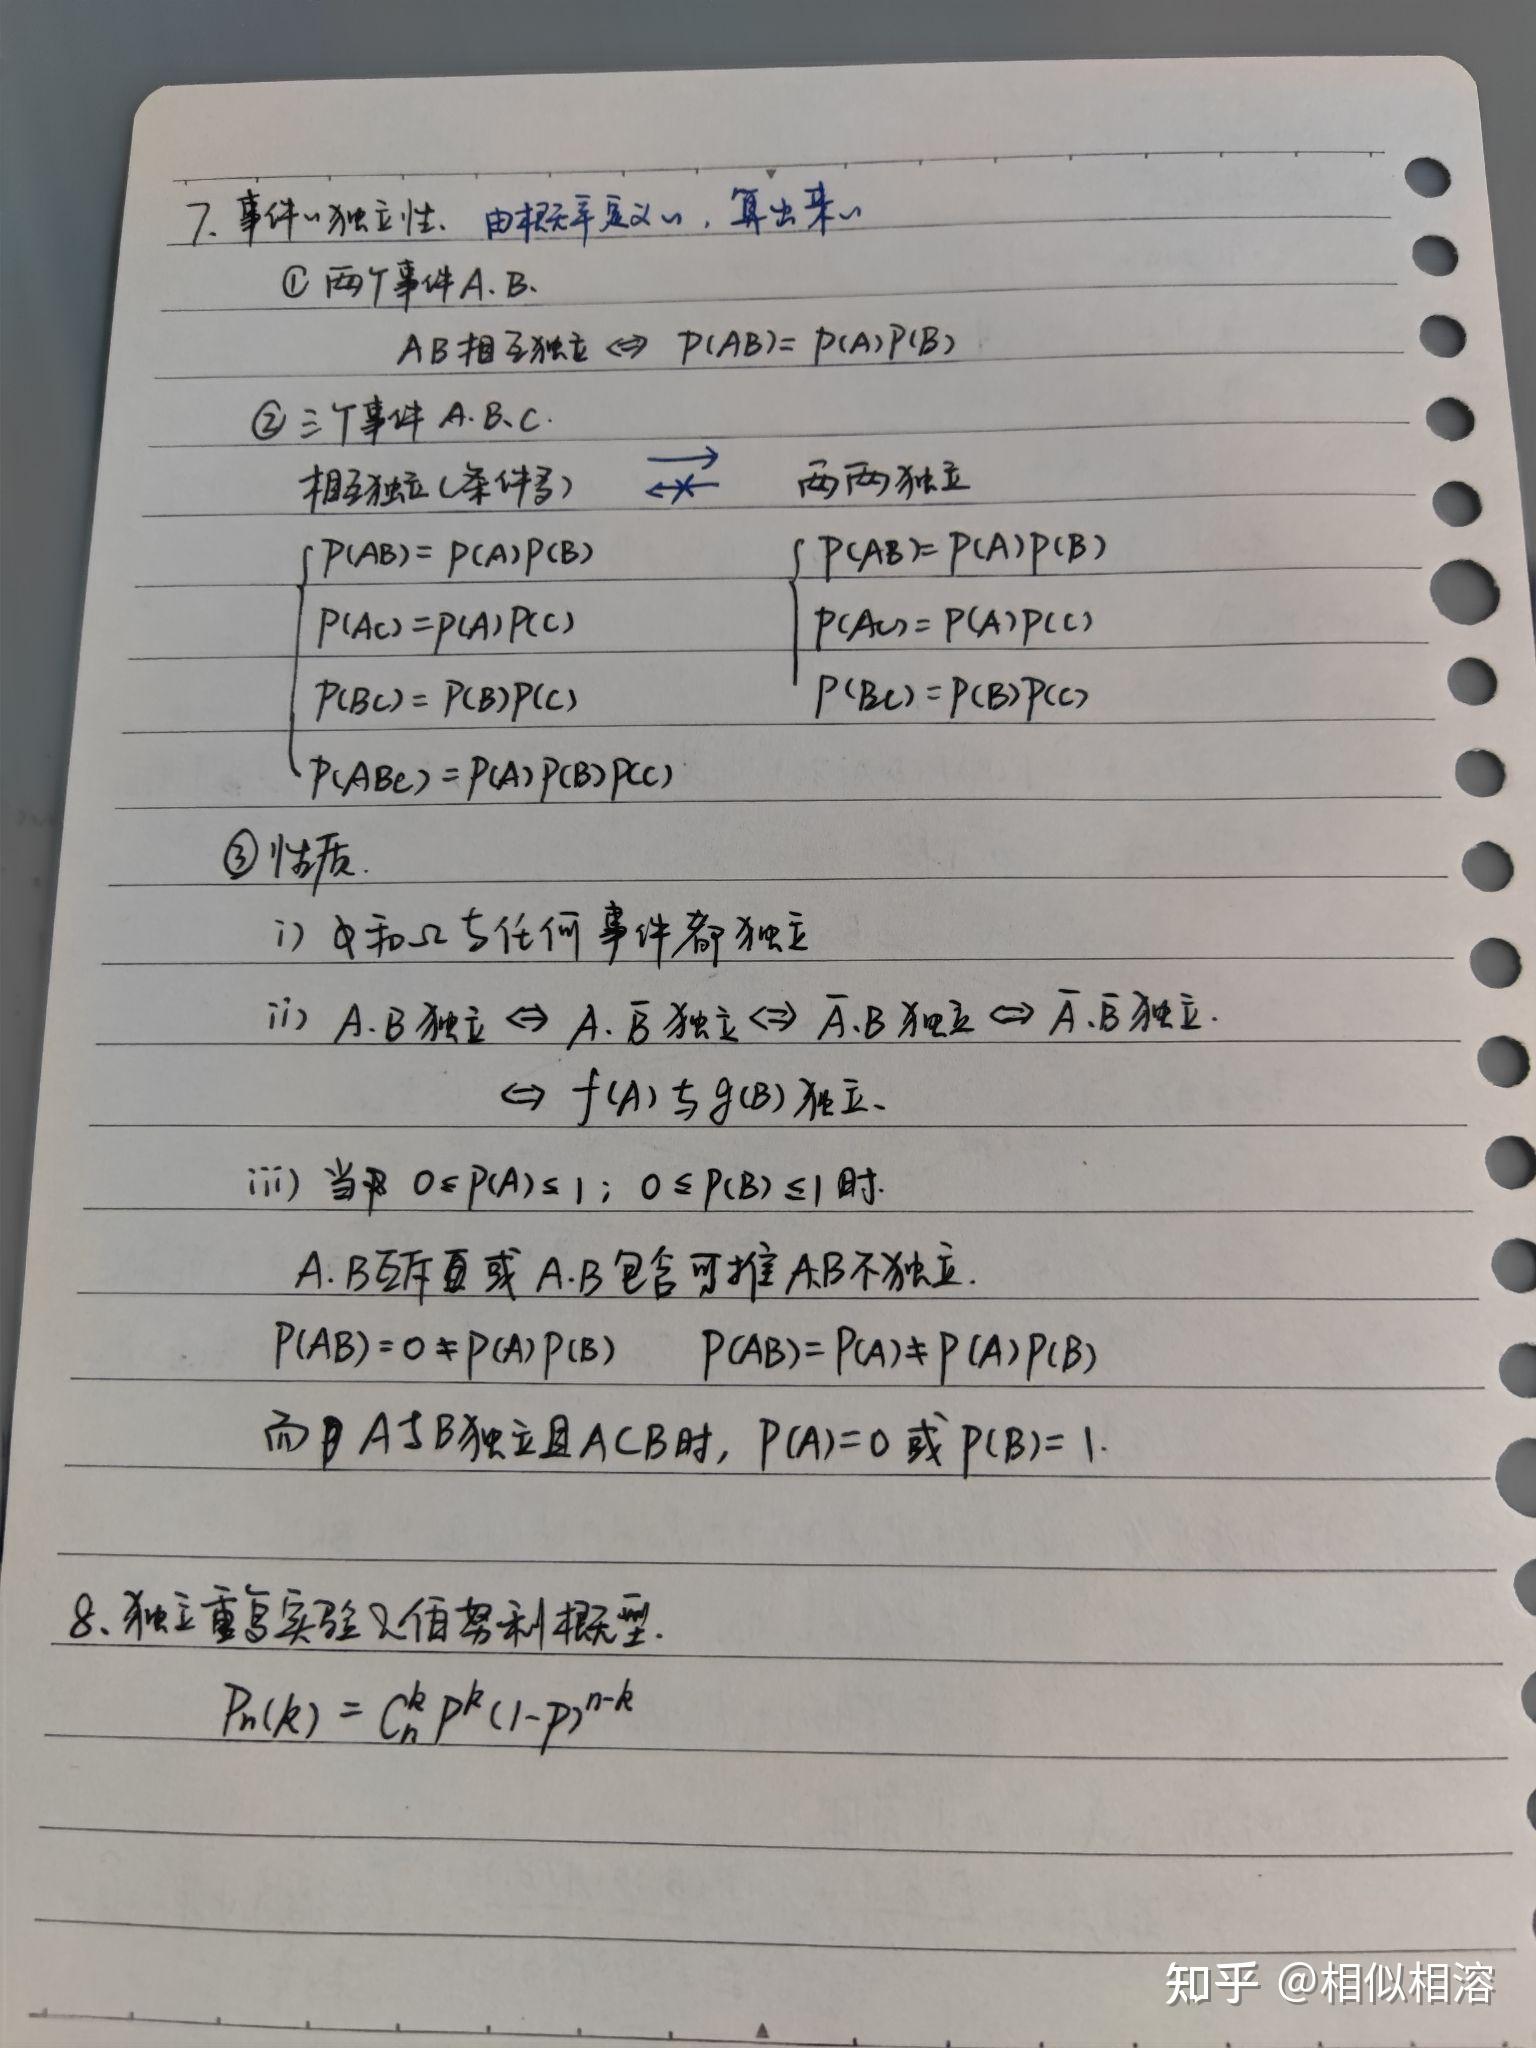 7、事件的独立性、由概率定义的,算出来的
① 两个事件A.B、
AB相互独立 ⇔ P(AB)= P(A)P(B)
② 三个事件 A.B、C.
相互独立(条件多) → ↚ 两两独立
P(AB)= P(A)P(B) P(AB)= P(A)P(B)
P(AC)=P(A)P(C) P(AC)= P(A)P(C)
P(BC)= P(B)P(C) P(BC)=P(B)P(C)
P(ABC)=P(A)P(B)P(C)
③ 性质.
i) φ和Ω与任何事件都独立
ii) A.B独立 ⇔ A.B̄独立 ⇔ Ā.B独立 ⇔ Ā.B̄独立.
⇔ f(A)与g(B)独立、
iii) 当 0≤P(A)≤1; 0≤P(B)≤1时.
A.B互斥或 A.B包含可推A.B不独立.
P(AB)=0≠P(A)P(B) P(AB)=P(A)≠P(A)P(B)
而 A与B独立且A⊂B时, P(A)=0 或 P(B)=1.
8、独立重复实验及伯努利概型.
Pₙ(k) = Cₙᵏ Pᵏ(1-P)ⁿ⁻ᵏ
知乎 @相似相溶